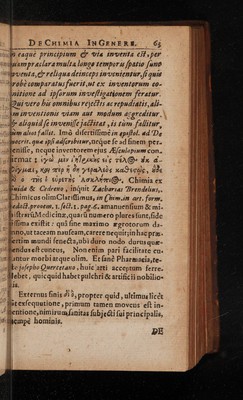 DE CHIMIA IN GENERE. 65
eaque principium & via inventa est, per
quam præclara multa longo temporis spatio sunt
inventa, & reliqua deinceps invenientur, si quis
probè comparatus fuerit, ut ex inventorum co-
gnitione ad ipsorum investigationem feratur.
Qui vero his omnibus rejectis ac repudiatis, ali-
am inventionis viam aut modum aggreditur,
& aliquid se invenisse jactitat, is tùm fallitur,
tùm alios fallit. Imò disertissimè in epistol. ad De-
mocrit. qua ipsi adscribitur, neque se ad finem per-
venisse, neque inventorem ejus Æsculapium con-
firmat:
Suida & Cedreno, inquit Zacharias Brendelius,
Chimicos olim Clarissimus, in Chim. in art. form.
redact. proœm. t. sect. 1. pag. 4. amanuensium & mi-
nistrarũ Medicinæ, quarũ numero plures sunt, fide-
lissima existit: quæ sine maximo ægrotorum da-
mno, ut taceam nauseam, carere nequit; in hac præ-
sertim mundi senecta, ubi duro nodo durus quæ-
rendus est cuneus. Non enim pari facilitate cu-
rantur morbi atque olim. Et sanè Pharmacis, te-
ste Josepho Quercetano, huic arti acceptum ferre
debet, quicquid habet pulchri & artificii nobilio-
ris.
Externus finis propter quid, ultimus licèt
in exsequutione, primum tamen movens est in-
tentione, nimirum sanitas subjecti sui principalis,
nempè hominis.
DE